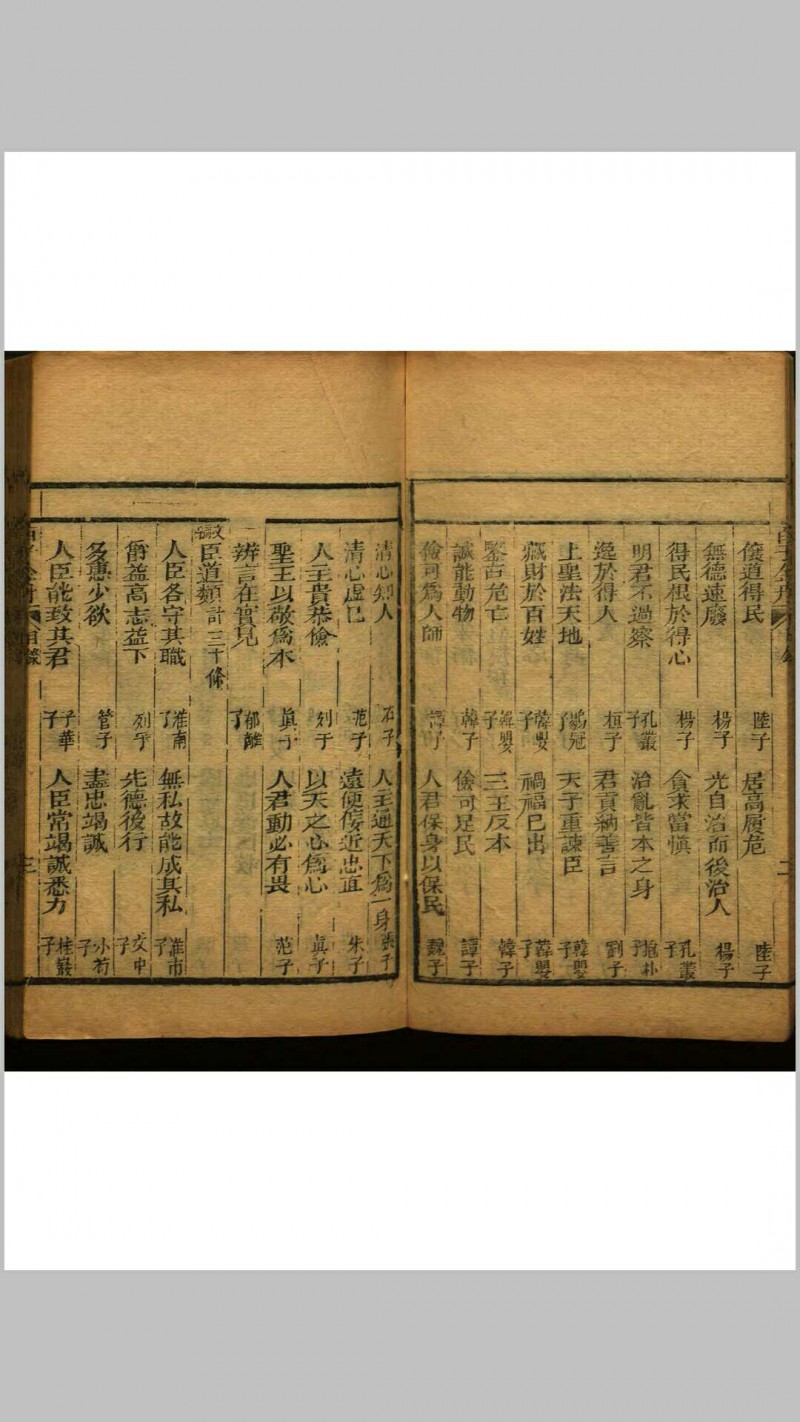 儉道得民 陸子 居高履危 陸子
無德速廢 楊子 先自治而後治人 楊子
得民根於得心 楊子 貪求當慎 孔叢子
明君不過察 孔叢子 治亂皆本之身 抱朴子
逸於得人 桓子 君貢納善言 劉子
上聖法天地 鶡冠子 天子重諫臣 韓嬰子
藏財於百姓 韓嬰子 禍福已出 韓嬰子
鑒古危亡 韓嬰子 三王反本 韓子
誠能動物 韓子 儉可足民 譚子
儉可爲人師 譚子 人君保身以保民 魏子
清心知人 石子 人主通天下爲一身 張子
清心虛己 范子 遠便佞近忠直 朱子
人主貴恭儉 列子 以天之心爲心 眞子
聖王以敬爲本 眞子 人君動必有畏 范子
辨言在實見 郁離子
臣道類 計三十條
人臣各守其職 淮南子 無私故能成其私 淮南子
爵益高志益下 列子 先德後行 文中子
多惠少欲 管子 盡忠竭誠 小荀子
人臣能致其君 子華子 人臣常竭誠悉力 桂巖子